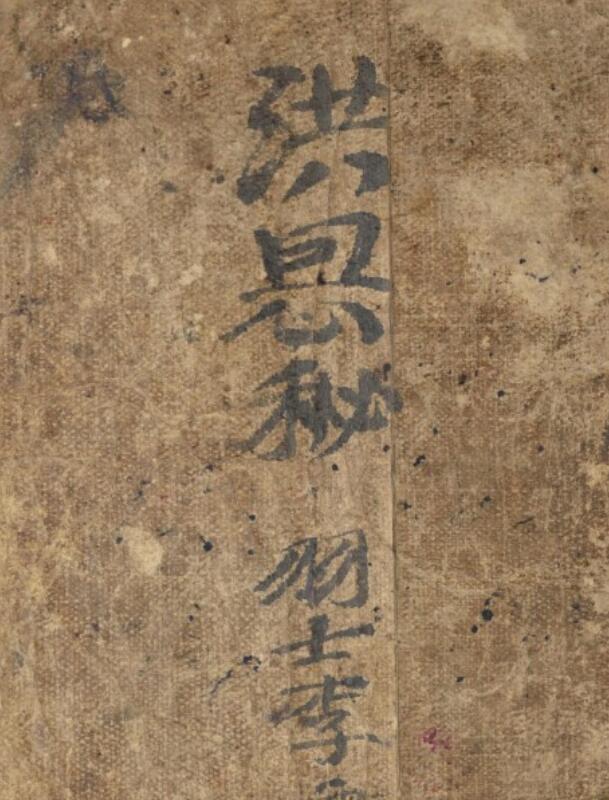 洪恩秘
羽士李